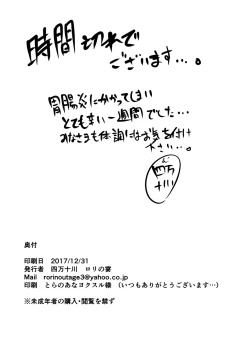 時間切れで
ございます…。
胃腸炎にかかってしまい
とても辛い一週間でした…
みなさまも体調にはお気を付け
下さい…。
四万十川
奥付
印刷日 2017/12/31
発行者 四万十川 ロリの宴
Mail rorinoutage3@yahoo.co.jp
印刷 とらのあなヨクスル様 （いつもありがとうございます…）
※未成年者の購入・閲覧を禁ず